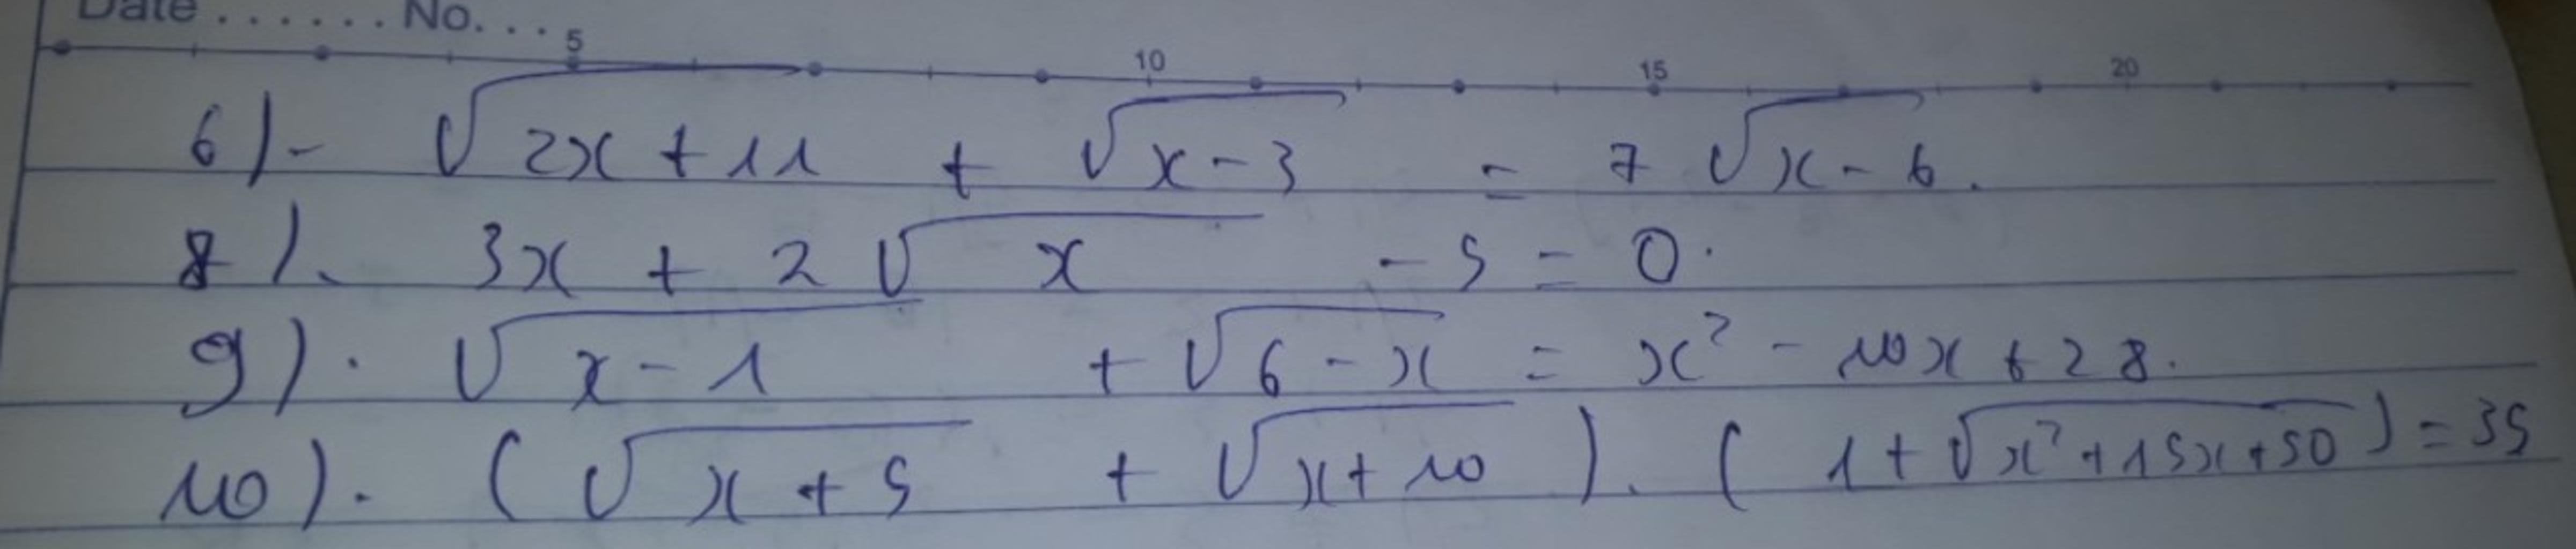 Date . . . . . . No. . . .
5 10 15 20
6)- √(2x + 11) + √(x - 3) = 7 √(x - 6).
8). 3x + 2 √x - 5 = 0.
9). √(x - 1) + √(6 - x) = x² - 10x + 28.
10). (√(x + 5) + √(x + 10)). (1 + √(x² + 15x + 50)) = 35